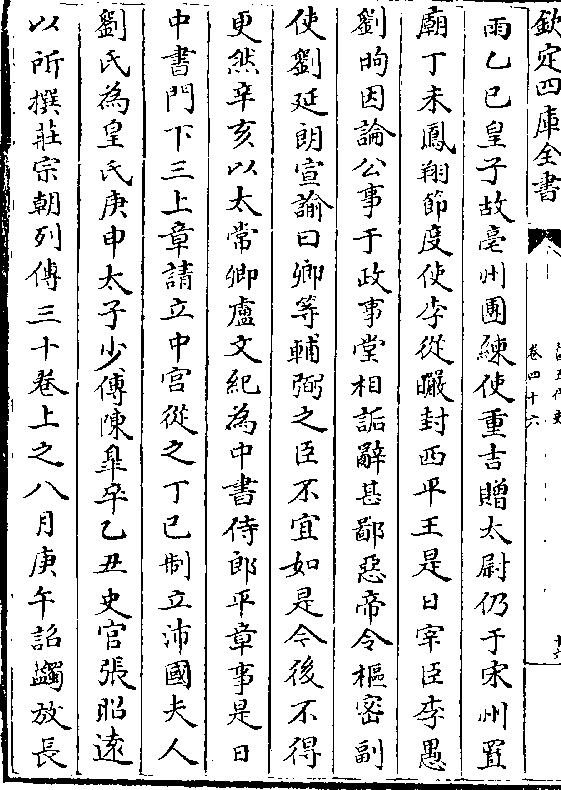 欽定四庫全書
卷四十六
雨乙巳皇子故亳州團練使重吉贈太尉仍于宋州置
廟丁未鳳翔節度使李從曮封西平王是日宰臣李愚
劉昫因論公事于政事堂相詬辭甚鄙惡帝令樞密副
使劉延朗宣諭曰卿等輔弼之臣不宜如是今後不得
更然辛亥以太常卿盧文紀為中書侍郎平章事是日
中書門下三上章請立中宮從之丁巳制立沛國夫人
劉氏為皇氏庚申太子少傅陳臯卒乙丑史官張昭遠
以所撰莊宗朝列傳三十卷上之八月庚午詔蠲放長